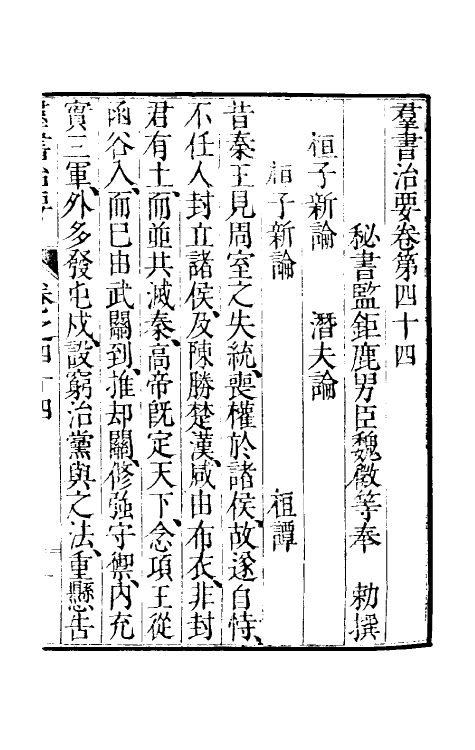 羣書治要卷第四十四
秘書監鉅鹿男臣魏徵等奉　勅撰
桓子新論　潛夫論
桓子新論　桓譚
昔秦王見周室之失統、喪權於諸侯、故遂自恃、
不任人封立諸侯、及陳勝楚漢、咸由布衣、非封
君有土、而並共滅秦、高帝旣定天下、念項王從
函谷入、而已由武關到、推却關、修强守禦、內充
實三軍、外多發屯戍、設窮治黨與之法、重懸告
羣書治要　卷之四十四